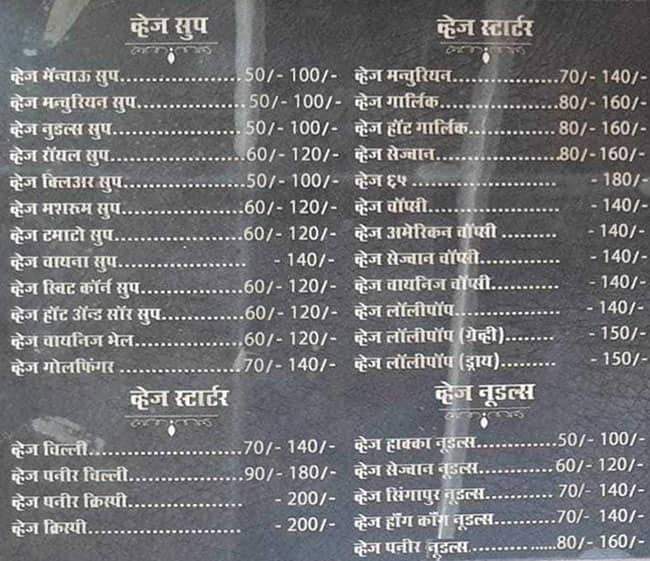 व्हेज सुप
व्हेज मॅन्चाऊ सुप......................50/- 100/-
व्हेज मन्चुरियन सुप....................50/- 100/-
व्हेज नुडल्स सुप.......................50/- 100/-
व्हेज रॉयल सुप........................60/- 120/-
व्हेज क्लिअर सुप......................50/- 100/-
व्हेज मशरूम सुप......................60/- 120/-
व्हेज टमाटो सुप.......................60/- 120/-
व्हेज चायना सुप....................... - 140/-
व्हेज स्विट कॉर्न सुप...................60/- 120/-
व्हेज हॉट ॲन्ड सॉर सुप...............60/- 120/-
व्हेज चायनिज भेल....................60/- 120/-
व्हेज गोलफिंगर .......................70/- 140/-
व्हेज स्टार्टर
व्हेज चिल्ली............................70/- 140/-
व्हेज पनीर चिल्ली.....................90/- 180/-
व्हेज पनीर क्रिस्पी..................... - 200/-
व्हेज क्रिस्पी............................ - 200/-
व्हेज स्टार्टर
व्हेज मन्चुरियन....................70/- 140/-
व्हेज गार्लिक.......................80/- 160/-
व्हेज हॉट गार्लिक.................80/- 160/-
व्हेज सेज्वान.......................80/- 160/-
व्हेज ६५ ........................... - 180/-
व्हेज चॉप्सी......................... - 140/-
व्हेज अमेरिकन चॉप्सी ........... - 140/-
व्हेज सेज्वान चॉप्सी............... - 140/-
व्हेज चायनिज चॉप्सी.............. - 140/-
व्हेज लॉलीपॉप..................... - 140/-
व्हेज लॉलीपॉप (ग्रेव्ही)............ - 150/-
व्हेज लॉलीपॉप (ड्राय)............. - 150/-
व्हेज नूडल्स
व्हेज हाक्का नूडल्स................50/- 100/-
व्हेज सेज्वान नूडल्स...............60/- 120/-
व्हेज सिंगापुर नूडल्स..............70/- 140/-
व्हेज हाँग काँग नूडल्स.............70/- 140/-
व्हेज पनीर नूडल्स.......... ......80/- 160/-